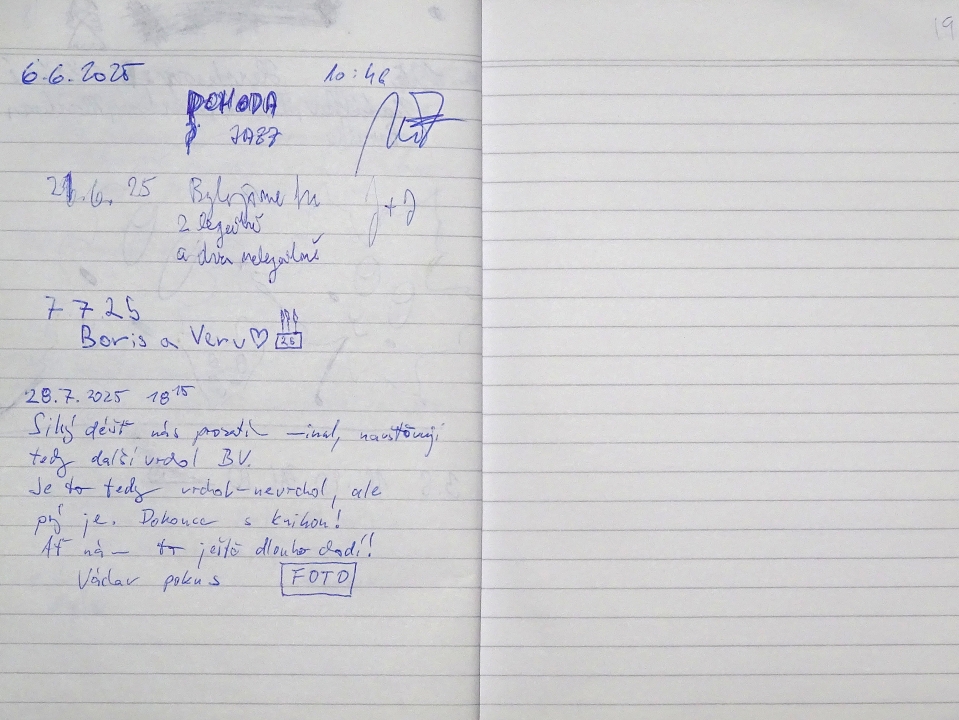 19
6.6.2025 10:46
POHODA
JAZZ
21.6.25 Byli jsme tu J+J
2 legálně
a dva nelegálně
7 7 25
Boris a Veru♡ 25
28.7.2025 18¹⁵
Silný déšť nás prozatím minul, navštěvuji
tedy další vrchol BV.
Je to tedy vrchol-nevrchol, ale
prý je. Dokonce s knihou!
Ať nám to ještě dlouho chodí!
Václav pokus FOTO